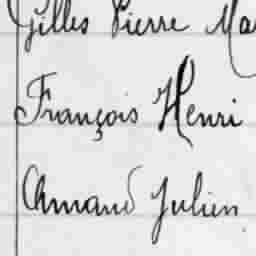 Gilles Pierre Ma
François Henri
Armand Julien